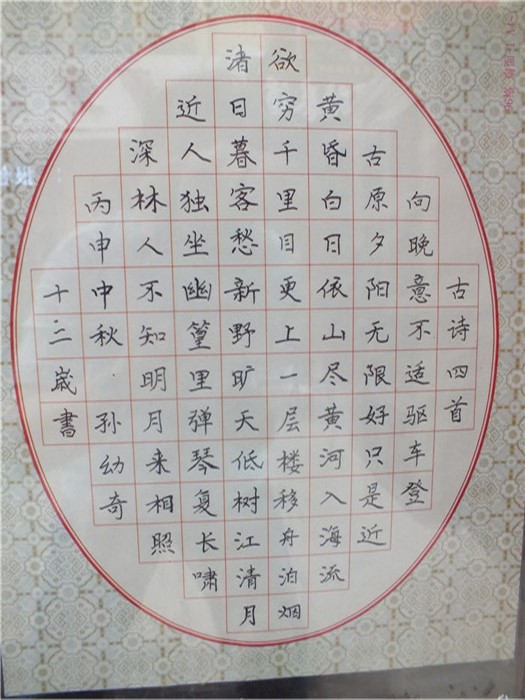 古诗四首
向晚意不适驱车登
古原夕阳无限好只是近
黄昏白日依山尽黄河入海流
欲穷千里目更上一层楼移舟泊烟
渚日暮客愁新野旷天低树江清月
近人独坐幽篁里弹琴复长啸
深林人不知明月来相照
丙申中秋 孙幼奇
十三嵗書